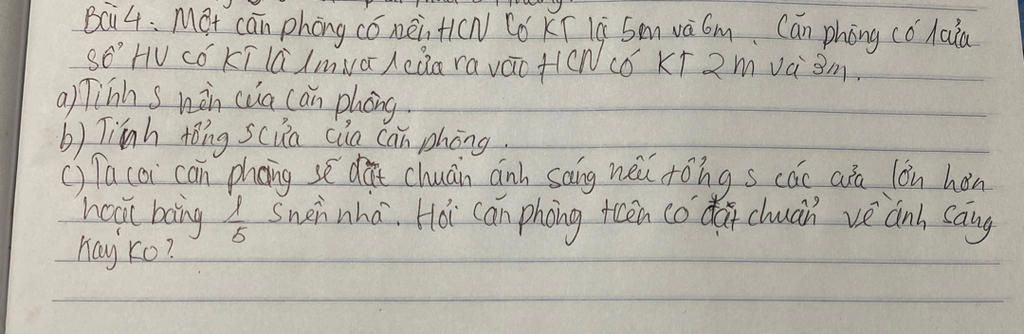 Bài 4: Một căn phòng có nền HCN có KT là 5m và 6m. Căn phòng có 1 cửa
sổ HV có KT là 1m và 1 cửa ra vào HCN có KT 2m và 3m.
a) Tính S nền của căn phòng.
b) Tính tổng S cửa của căn phòng.
c) Ta coi căn phòng sẽ đạt chuẩn ánh sáng nếu tổng S các cửa lớn hơn
hoặc bằng 1/5 S nền nhà. Hỏi căn phòng trên có đạt chuẩn về ánh sáng
hay ko?